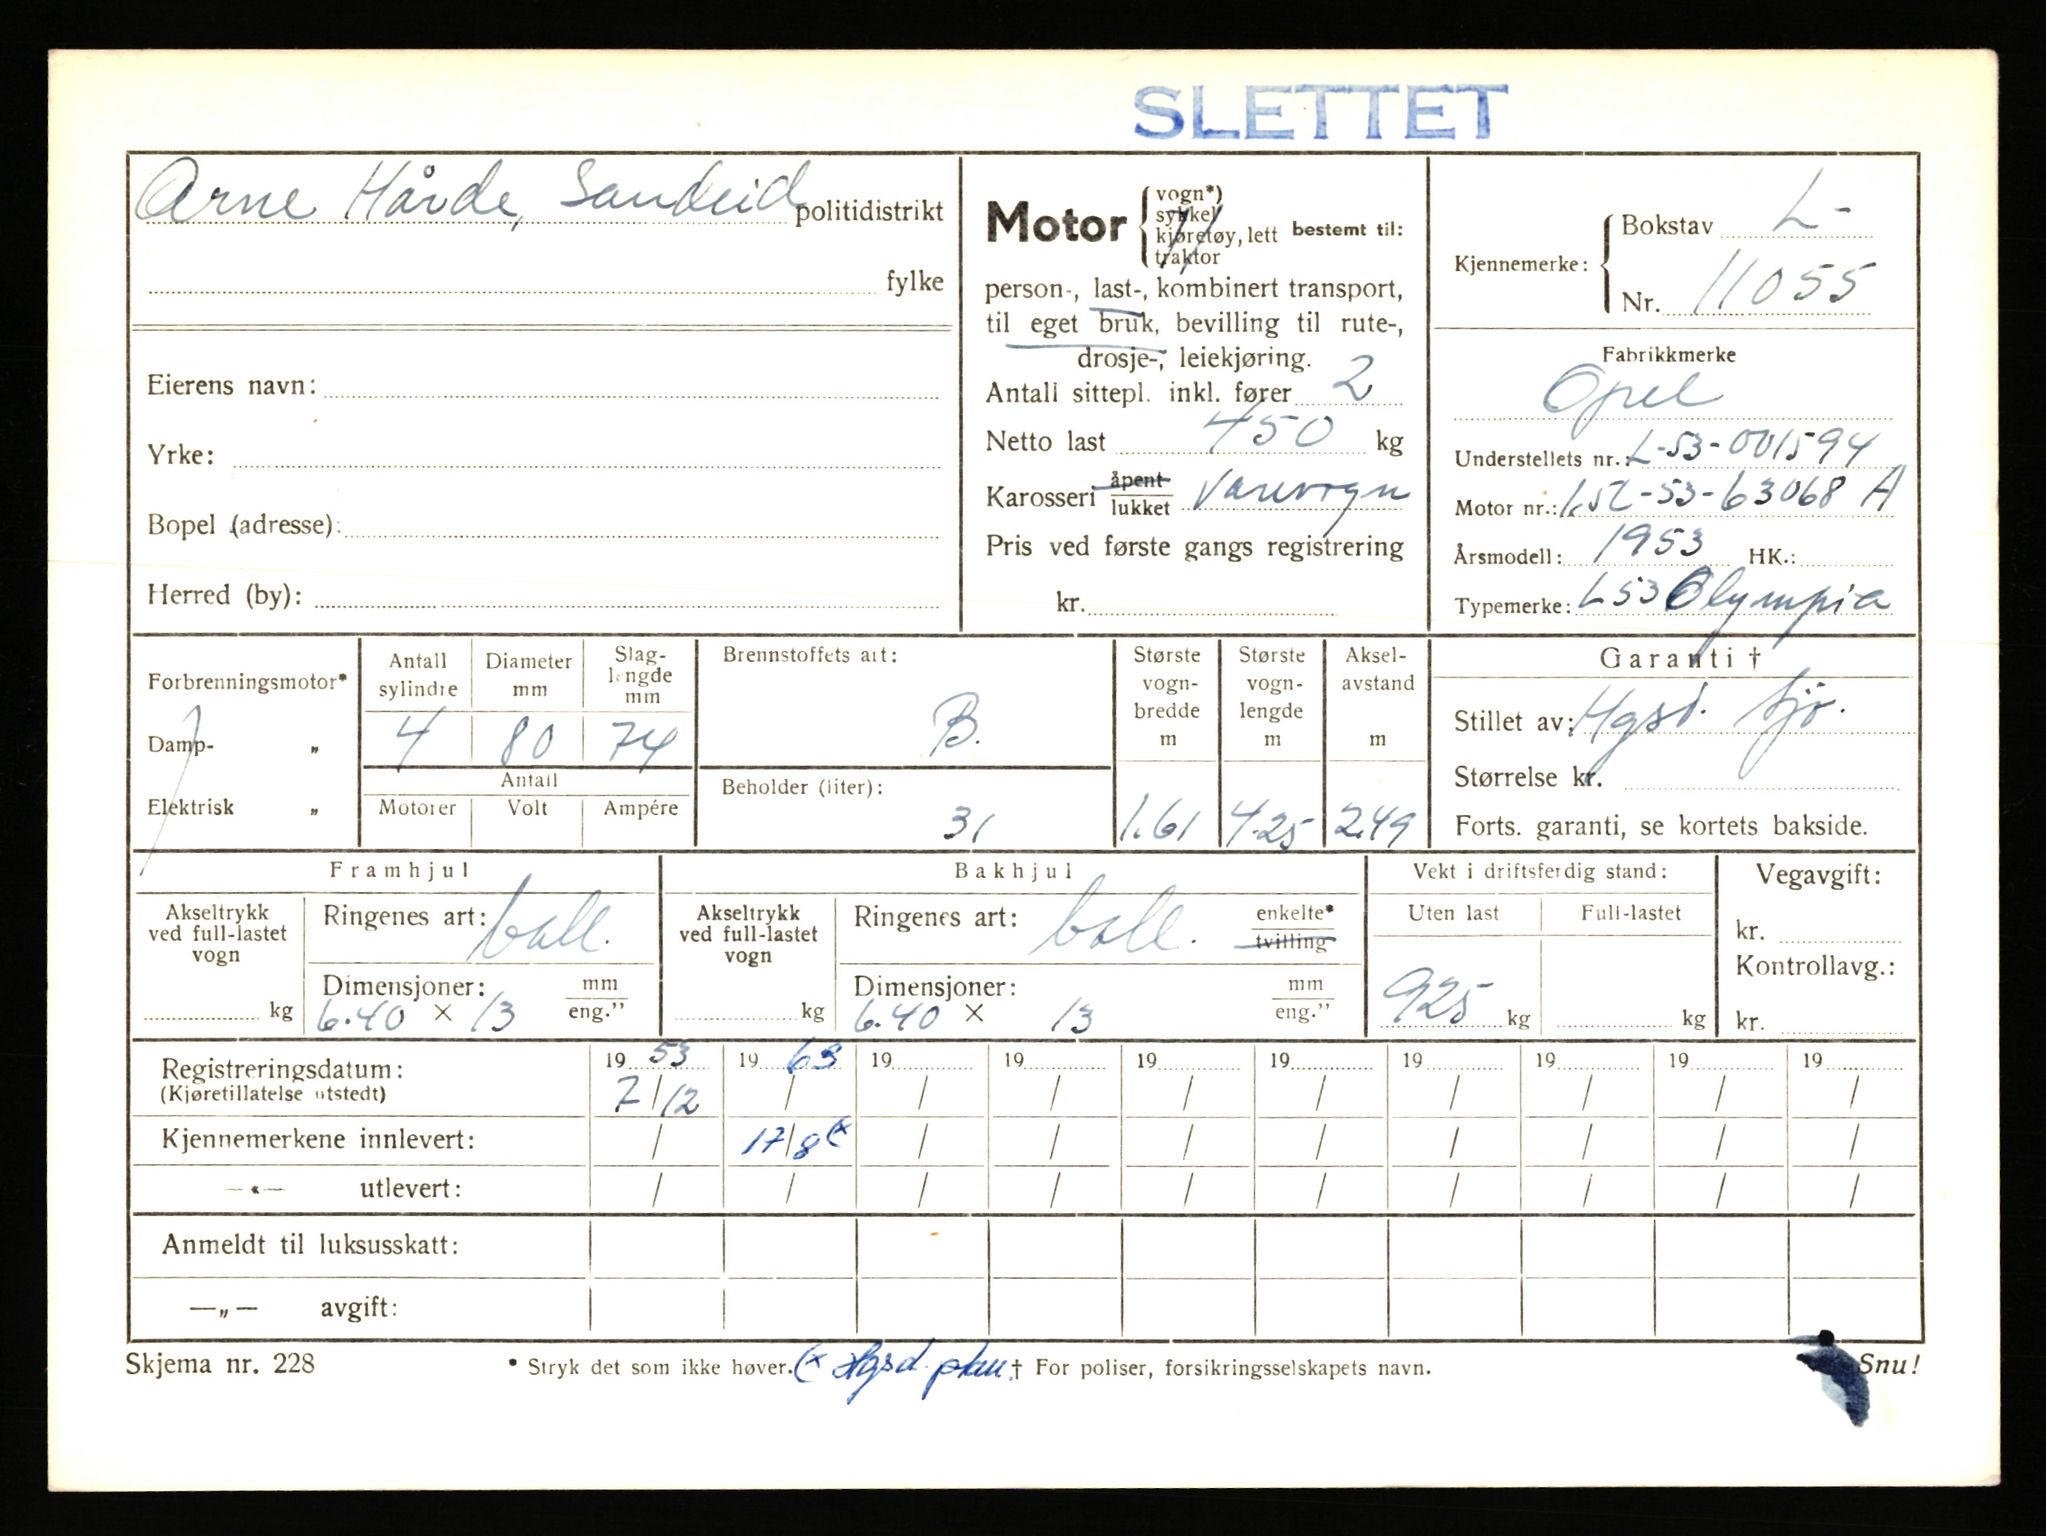 SLETTET
Arne Hårde, Sandeid politidistrikt
fylke
Eierens navn:
Yrke:
Bopel (adresse):
Herred (by):
Motor { vogn*)
sykkel
kjøretøy, lett
traktor
bestemt til:
person-, last-, kombinert transport,
til eget bruk, bevilling til rute-,
drosje-, leiekjøring.
Antall sittepl. inkl. fører 2
Netto last 450 kg
Karosseri åpent
lukket Varevogn
Pris ved første gangs registrering
kr.
Kjennemerke: { Bokstav L-
Nr. 11055
Fabrikkmerke
Opel
Understellets nr.: L-53-001594
Motor nr.: 1,5L-53-63068 A
Årsmodell: 1953 HK.:
Typemerke: L53 Olympia
Forbrenningsmotor*
Damp- „
Elektrisk „
Antall sylindre
Diameter mm
Slaglengde mm
4 80 74
Antall
Motorer Volt Ampére
Brennstoffets art:
B.
Beholder (liter):
31
Største vogn-bredde m
1.61
Største vogn-lengde m
4.25
Aksel-avstand m
2.49
Garanti †
Stillet av: Hgsd. Sjø.
Størrelse kr.
Forts. garanti, se kortets bakside.
Framhjul
Akseltrykk
ved full-lastet
vogn
kg
Ringenes art: ball.
Dimensjoner: mm
6.40 × 13 eng."
Bakhjul
Akseltrykk
ved full-lastet
vogn
kg
Ringenes art: ball. enkelte*
tvilling
Dimensjoner: mm
6.40 × 13 eng."
Vekt i driftsferdig stand:
Uten last Full-lastet
925 kg kg
Vegavgift:
kr.
Kontrollavg.:
kr.
Registreringsdatum: 19 53 19 63 19 19 19 19 19 19 19 19
(Kjøretillatelse utstedt) 7/12 / / / / / / / / /
Kjennemerkene innlevert: / 17/8 (x / / / / / / / /
—«— utlevert: / / / / / / / / / /
Anmeldt til luksusskatt:
—„— avgift:
Skjema nr. 228 * Stryk det som ikke høver. (x Hgsd. plan. † For poliser, forsikringsselskapets navn. Snu!